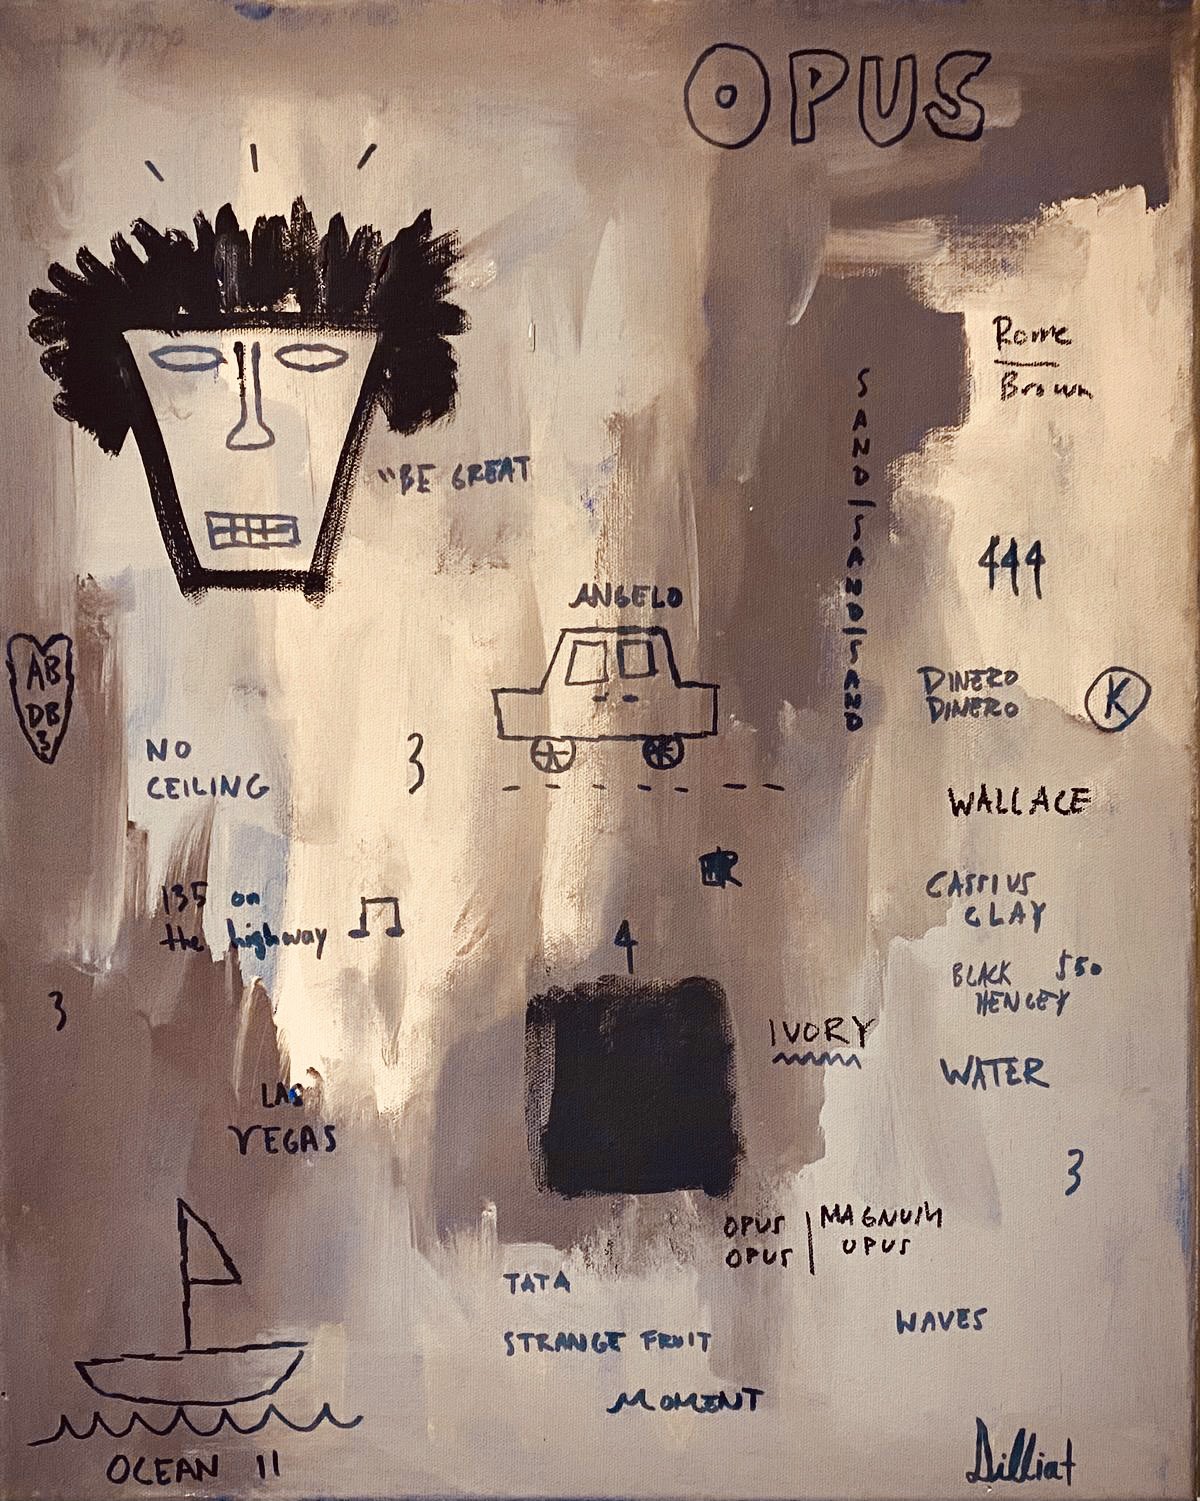 OPUS
Rome
Brown
SAND/SAND/SAND
"BE GREAT
444
ANGELO
AB
DB
3
DINERO
DINERO
K
NO
CEILING
3
WALLACE
135 on
the highway
CASSIUS
CLAY
4
BLACK 550
HENLEY
3
IVORY
WATER
LAS
VEGAS
3
OPUS
OPUS
MAGNUM
OPUS
TATA
WAVES
STRANGE FRUIT
MOMENT
OCEAN 11
Dilliat